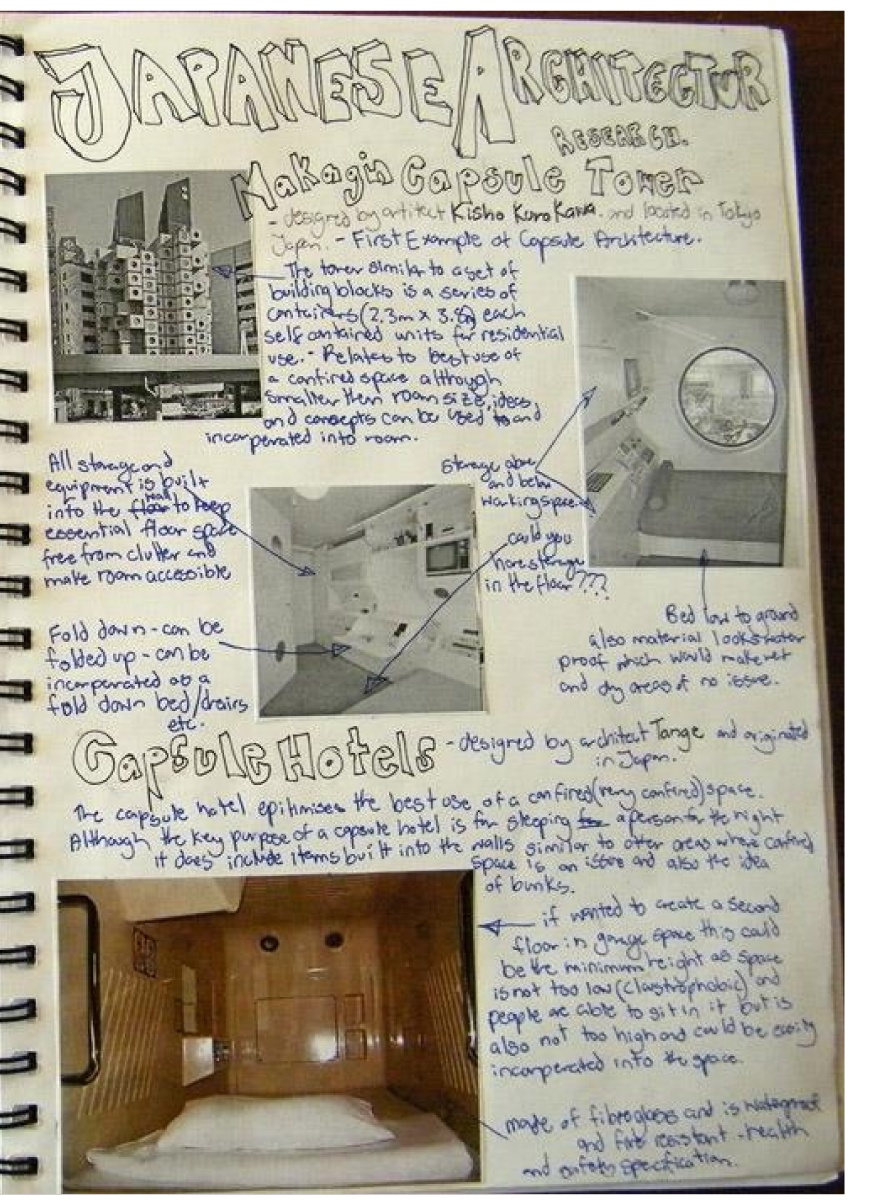 JAPANESE ARCHITECTUR
RESEARCH.
Makagin Capsule Tower
- designed by artitect Kisho KuroKawa. and located in Tokyo
Japan. - First Example of Capsule Architecture.
The tower similar to a set of
building blocks is a series of
containers (2.3m x 3.8m) each
self contained units for residential
use. - Relates to best use of
a confired space although
smaller then room size, ideas
and concepts can be used to and
incorperated into room.
All storage and
equipment is built
into the floor wall to keep
essential floor space
free from clutter and
make room accessible
Storage above
and below
working space.
could you
have storage
in the floor???
Bed low to ground
also material looks water
proof which would make wet
and dry areas of no issue.
Fold down - can be
folded up - can be
incorperated as a
fold down bed/chairs
etc.
Capsule Hotels - designed by architect Tange and originated
in Japan.
The capsule hotel epihmises the best use of a confired (very confired) space.
Although the key purpose of a capsule hotel is for sleeping for a person for the night
it does include items built into the walls similar to other areas where confired
space is an issue and also the idea
of bunks.
if wanted to create a second
floor in garage space this could
be the minimum height as space
is not too low (claustrophobic) and
people are able to sit in it but is
also not too high and could be easily
incorperated into the space.
made of fibreglass and is waterproof
and fire resistant - health
and safety specification.